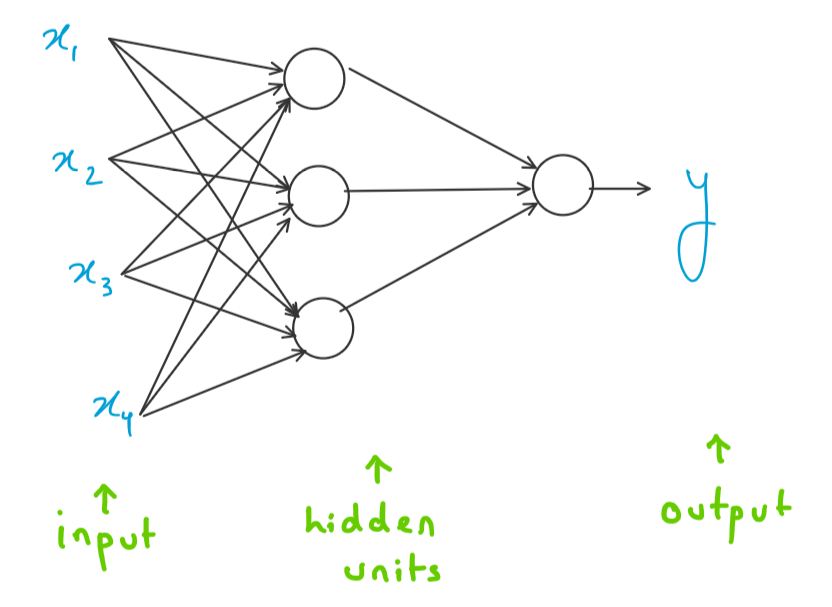 x₁
x₂
x₃
x₄
y
input
hidden
units
output